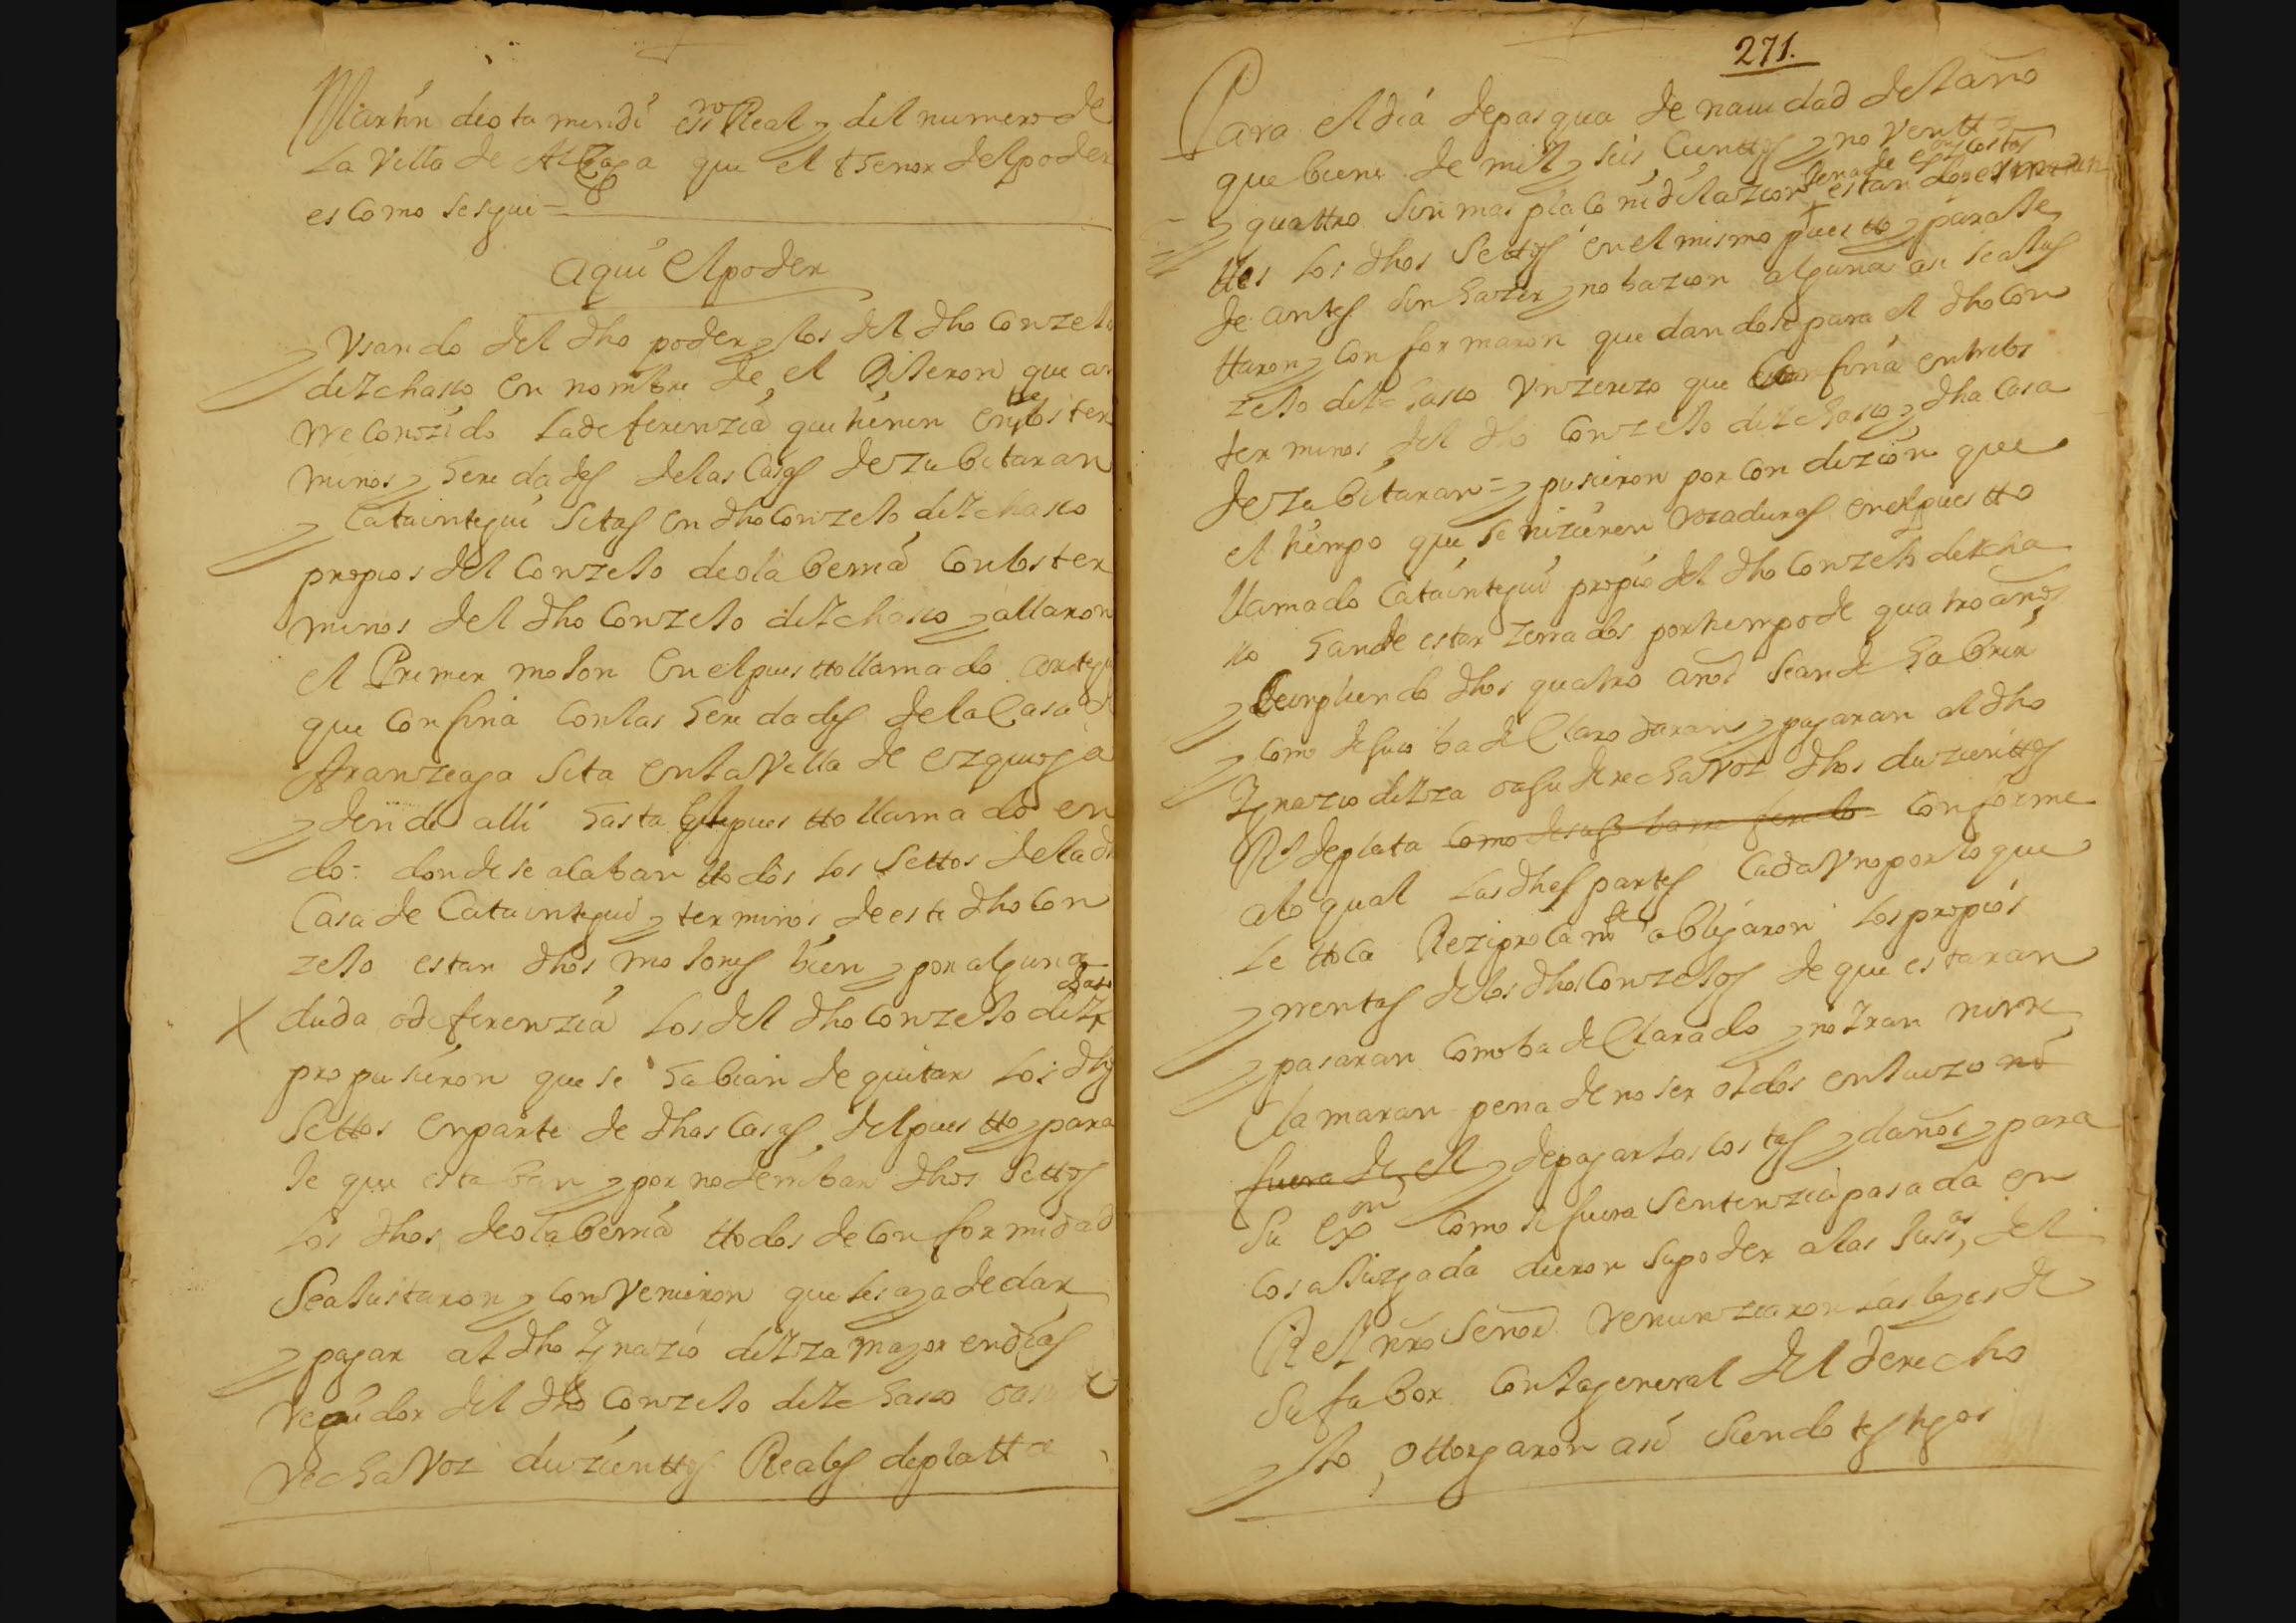 Martin de otamendi essno Real y del numero de
la Villa de Alzaga que el thenor del poder
es como sesigue =
aqui el poder
y Vsando del dho poder y los del dho Conzejo
de itchasso en nombre de el Dijeron que an
rreConozido la deferenzia que tienen entre los ter
minos y heredades de las Casas de zubitaran
y Cataintegui sitas en dho Conzejo de itchasso
propios del Conzejo de olaberria Con los ter
minos del dho Conzejo de itchasso y allaron
el Primer mojon en el puestto llamado
que Confina Con las heredades de la Casa de
Aranzeaga sita en la Villa de ezquioga
y dende alli hasta el puestto llamado en
do = donde se alaban ttodos los settos de la dha
Casa de Cataintegui y terminos de este dho Con
zejo estan dhos mojones bien y por alguna
duda o deferenzia los del dho Conzejo de itchasso
propusieron que se habian de quitar los dhos
settos en parte de dhas Casas del puestto y para
je que estaban y por no derribar dhos settos
los dhos de olaberria ttodos de Conformidad
Se ajustaron y ConVenieron que les aya de dar
y pagar al dho Ygnazio de itza mayor en dias
regidor del dho Conzejo de itchasso o a su
recha Voz duzienttos Reales de platta
271.
Para el dia de pasqua de nauidad del año
que biene de mill y seis Cienttos y noVentta
y quattro sin mas plaço ni dilazion pena de exon y costas estandose
ttes los dhos settos en el mismo puestto y paraje
de antes sin hazer ynobazion alguna asi se ajus
ttaron y conformaron quedandose para el dho Con
zejo de itchasso Vn zerezo que Confina entre los
terminos del dho Conzejo de itchasso y dha Casa
de zubitaran = y pusieron por Condizion que
el tiempo que se hizieren rozaduras en el puestto
llamado Cataintegui propio del dho Conzejo de itcha
sso han de estar zerrados por tiempo de quatro años
y Cumpliendo dhos quatro años se an de habrir
y como de suso ba declaro daran y pagaran al dho
Ygnazio de itza o a su derecha Voz dhos duzienttos
Rs de plata como de suso ba rreferido = Conforme
a lo qual las dhas partes Cada Vno por lo que
le ttoca Reziprocamte obligaron los propios
y rrentas de los dhos Conzejos de que estaran
y pasaran Como ba declarado y no Yran ni rre
clamaran pena de no ser oydos en juizio ni
fuera de el y de pagar las costas y daños y para
su exon Como si fuera Sentenzia pasada en
cosa Juzgada dieron su poder a las Jussas del
Rey nro Señor renunziaron las leyes de
su fabor Con la general del derecho
y lo ottorgaron asi siendo testigos